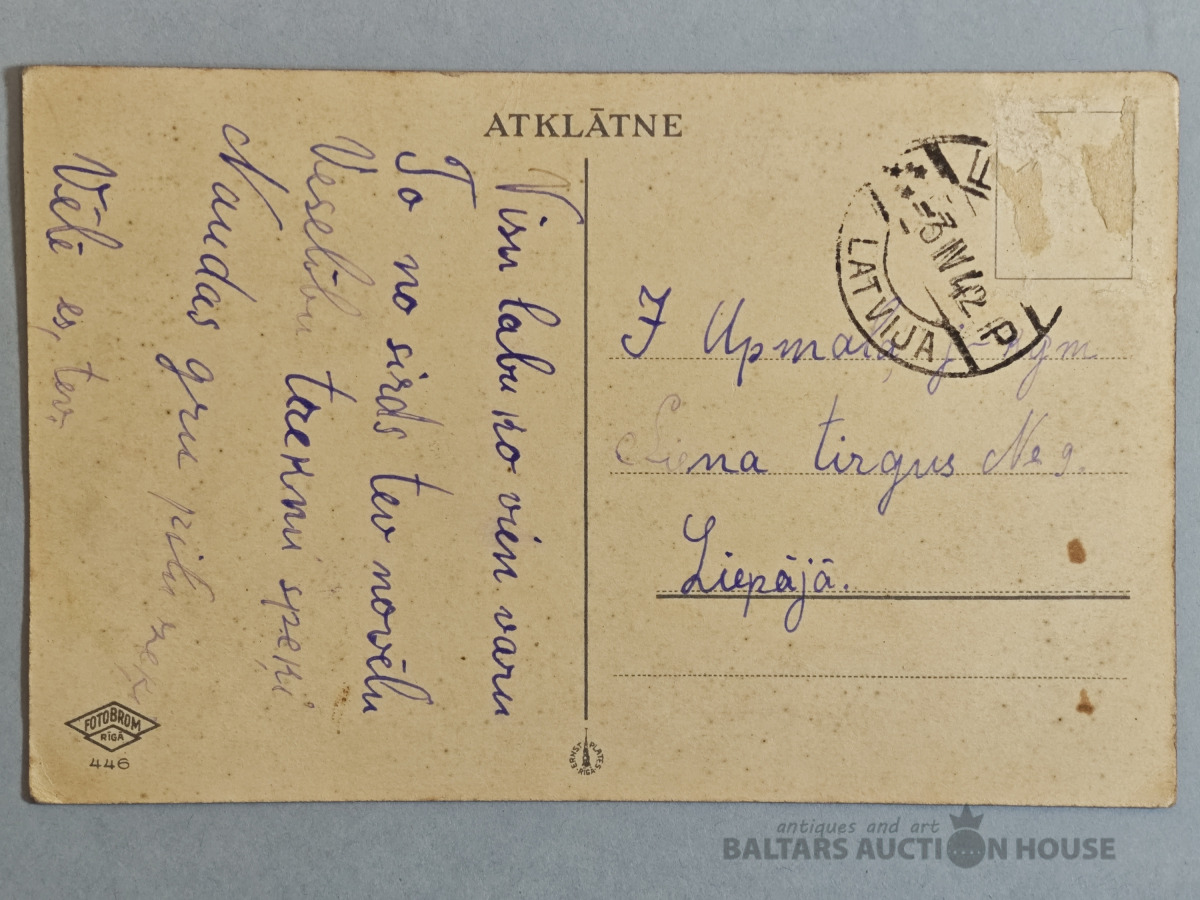 ATKLĀTNE
Visu labu ko vien varu
To no sirds tev novēlu
Veselību taeknu speķi
Naudas gru pilu
Vēlē es, tev.
-3 IV 42
LATVIJA
P
Upmalą j-kgm
na tirgus No 9.
Liepājā.
FOTOBROM
RĪGĀ
446
ERNST PLATES
RĪGĀ
antiques and art
BALTARS AUCTION HOUSE